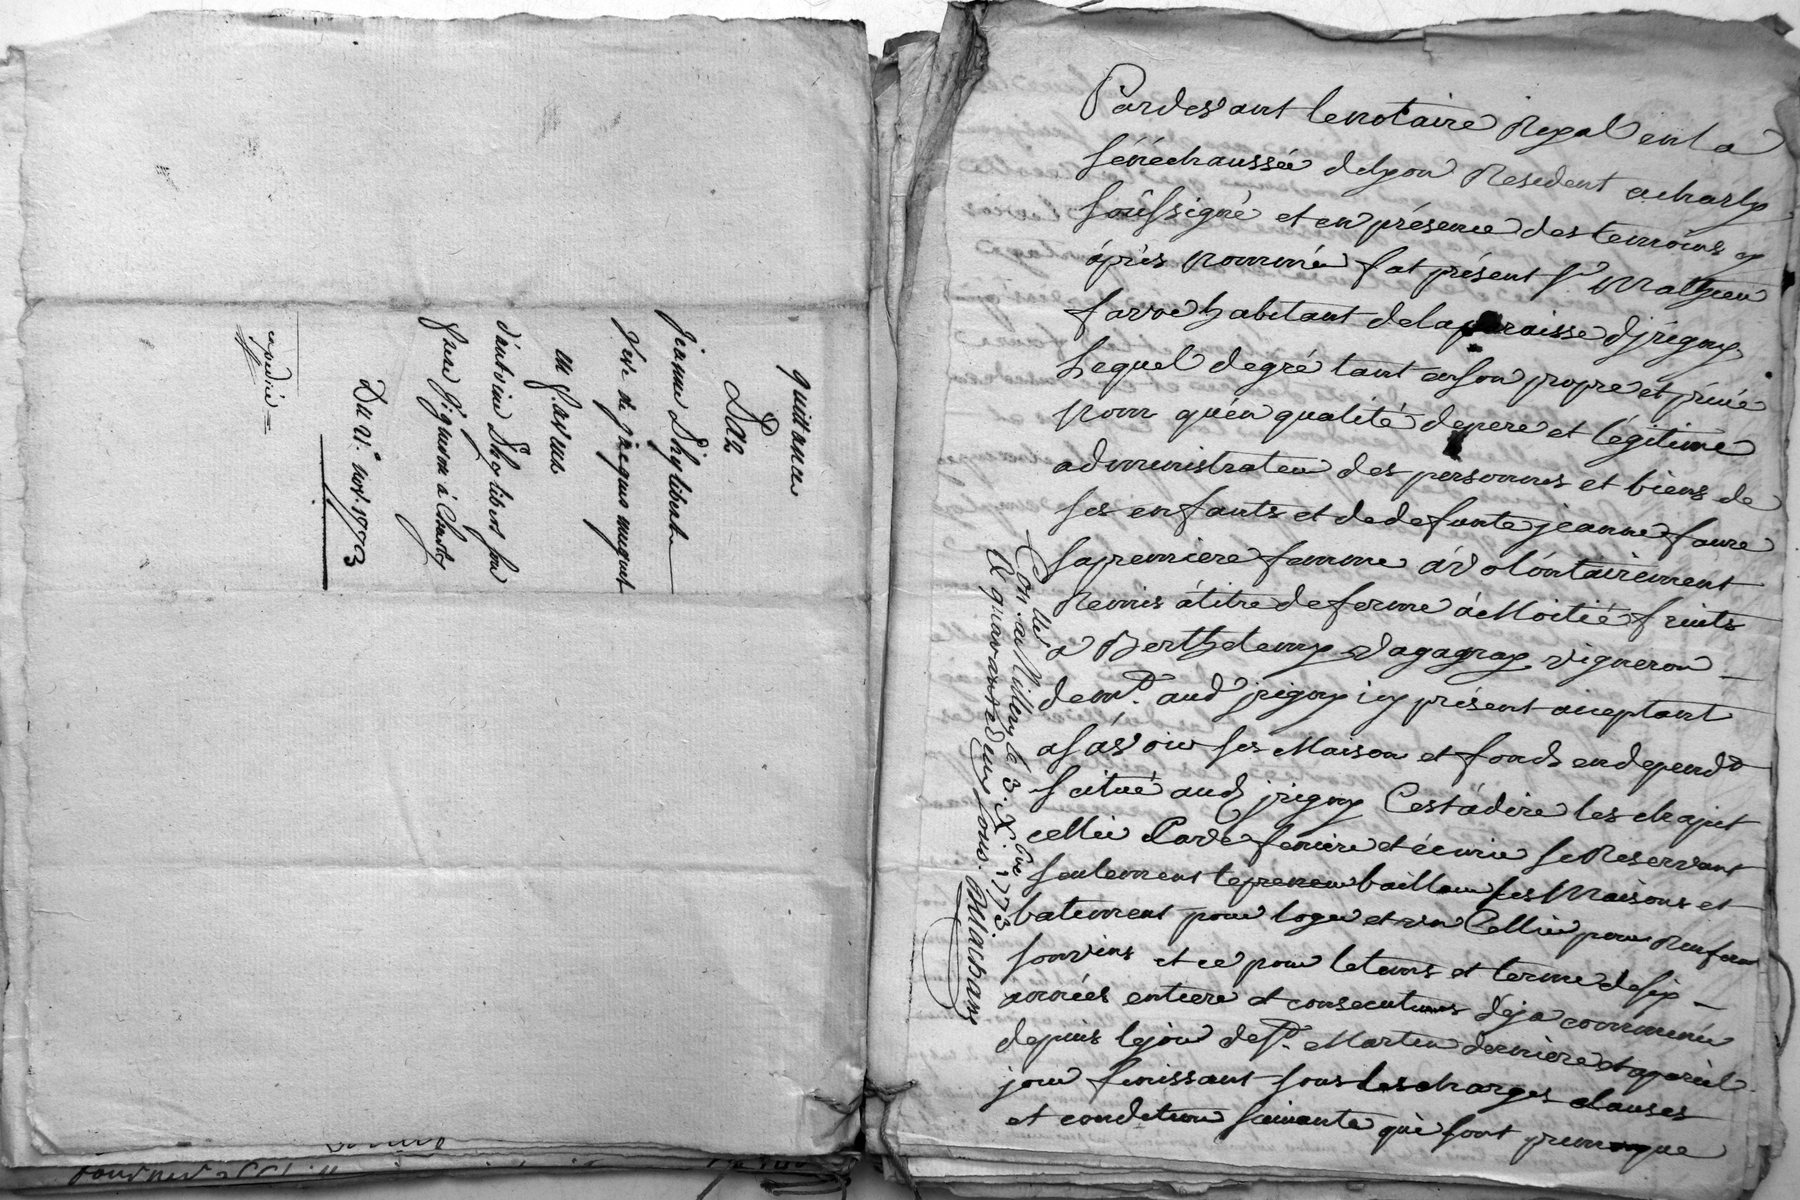 quittance
Par
jeanne Phylibert
vve de jacques muguet
en faveur
d'antoine Phylibert son
frere vigneron à Charly
Du 21 nov. 1773
expédiée
Pardevant le notaire Royal en la
sénéchaussée de lyon Resident a charly
soussigné et en présence des temoins cy
après nommés fut présent sr. Mathieu
favre habitant de la paroisse d'jrigny
Lequel de gré tant en son propre et privé
nom qu'en qualité de pere et légitime
administrateur des personnes et biens de
ses enfants et de defunte jeanne faure
sa premiere femme a volontairement
Remis à titre de ferme à Moitié fruits
a Berthelemy Dagagnay vigneron
demt. aud jrigny icy présent acceptant
a savoir ses Maison et fonds en dependt
scitué aud jrigny C'est à dire les chapit
cellier Cave feniere et écurie se Reservant
seulement le preneur bailleur ses Maisons et
batiment pour loger et un Cellier pour Renfermer
son vins et ce pour le tems et terme de six
années entiere et consecutives déja commencé
depuis le jour de St. Martin derniere et a pareil
jour finissant sous les charges clauses
et condition suivante qui sont premier que
Collé
Con. a Millery le 3. Xbre 1773
R quarante deux sous.